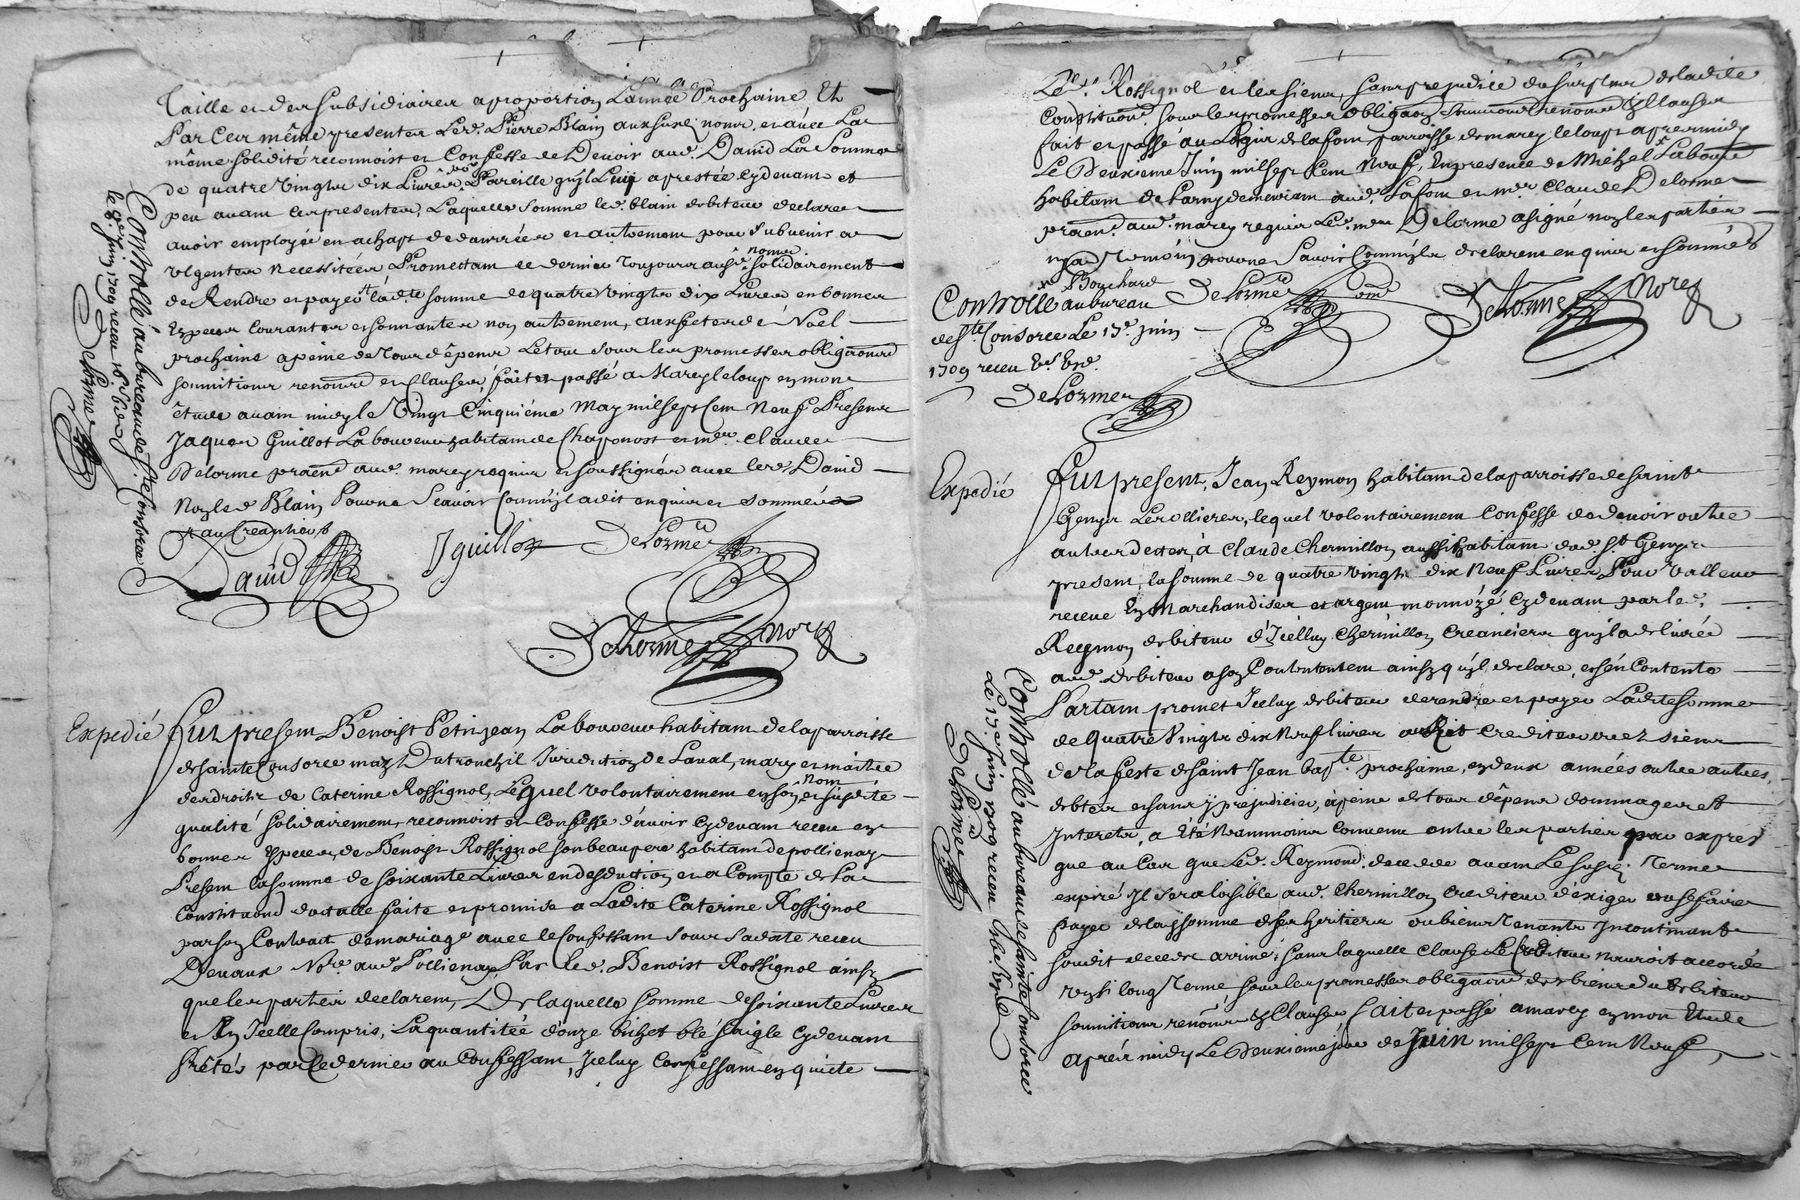 Taille et des subsidiaires a proportion L'année Prochaine Et
Par Ces même presentes Led. Pierre Blain aux susd. noms, et avec La
même solidité reconnoist et Confesse de Devoir aud. David La Somme
de quatre Vingts dix Livres Pareille qu'il Luy a prestée cydevant et
peu avant ces presentes, Laquelle Somme led. blain debiteur declare
avoir employée en achapt de danrrées et autrement pour Subvenir a
urgentes necessitées Promettant ce dernier toujours aux d. noms solidairement
de Rendre et payer lad.te somme de quatre vingts dix Livres en bonnes
Especes Courantes et sonnantes non autrement, aux festes de Noël
prochaine a peine de tous dêpens Le tout sous les promesses obligaons
soumitions renonc. et Clauses, fait et passé a Marcy le loup en mon
êtude avant midy le Vingt Cinquiéme May mil sept Cent Neuf Presents
Jaques Guillot Laboureur habitant de Chaponost et m.re Claude
Delorme praen. aud. marcy requis et soussignés avec led. David
Non led. Blain Pour ne Scavoir Comm'il a dit enquis et sommé
David
JGuillot
DeLorme
DeLorme No.re
Controllé au bureau de Ste Consorce
le 8e juin 1709 receu
Delorme
Expedié
Fut present Benoist Petitjean Laboureur habitant de la parroisse
de sainte Consorce Juridiction de Laval, mary et maitre
des droits de Caterine Rossignol, Lequel volontairement en son nom et susdite
qualité solidairement, reconnoist et Confesse d'avoir cydevant receu en
bonnes Especes de Benoist Rossignol son beaupere habitant de pollienay
Present La somme de soixante Livres en deduction et a Compte de La
Constitu.on dotalle faite et promise a Ladite Caterine Rossignol
par son Contrait de mariage avec le Confessant sous sa datte receu
Devaux No.re aud. Pollienay Par led. Benoist Rossignol ainsy
que les parties declarent, De laquelle somme de soixante Livres
est En Icelle Compris, La quantitée d'onze bichet blé saigle cydevant
Prêtés par le dernier au Confessant, Iceluy Confessant en quitte
Led. Rossignol et les siens, sans prejudice du surplus de ladite
Constitu.on sous les promesses obliga.on soumitions renonc. & Clauses
fait et passé au Logis de la Font parroisse de marcy le loup apres midy
Le Deuxieme Juin mil sept Cent Neuf, En presence de Michel
habitant de et m.re Claude Delorme
praen. aud. marcy requis Led. m.re Delorme a signé non les parties
pour ne Savoir Comm'ils declarent enquis et sommés
Controllé au bureau
de Ste Consorce Le 13e juin
1709 receu
DeLorme
DeLorme
DeLorme No.re
Expedié
Fut present, Jean Reymon habitant de la parroisse de saint
Genys Lerollieres, lequel volontairement Confesse de devoir outre
autres dettes, à Claude Chermillon aussi habitant dud. St Genys
present, la somme de quatre vingts dix neuf Livres Pour valleur
receue En Marchandises et argent monnoyé cydevant par led.
Reymon debiteur d'Icelluy Chermillon Creancier qu'il a delivrée
aud. debiteur a son Contentement ainsy qu'il declare, et s'en Contente
Partant promet Iceluy debiteur de rendre et payer Ladite Somme
de Quatre Vingts dix Neuf livres audit Crediteur ou ez siens
de la feste de saint Jean bap.te prochaine, en deux années outre autres
debtes et sans y prejudicier, à peine de tous dêpens dommages et
Interets, a Eté Neammoins Convenu entre les parties par exprés
que au Cas que Led. Reymond, decede avant Le susd. Terme
expiré Il sera loisible aud. Chermillon Crediteur d'exiger et se faire
payer de la ssomme de ses heritiers ou biens tenants Incontinant
soudit decedz arrivé; sans laquelle Clause Le Crediteur n'auroit accordé
un si long Terme, sous les promesses obliga.on des biens du debiteur
soumitions renonc. & Clauses Fait et passé a marcy en mon Etude
aprés midy Le Deuxieme jour de Juin mil sept Cent Neuf,
Controllé au bureau de sainte Consorce
Le 13e Juin 1709 receu
Delorme